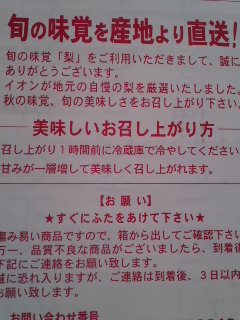 旬の味覚を産地より直送！
旬の味覚「梨」をご利用いただきまして、誠に
ありがとうございます。
イオンが地元の自慢の梨を厳選いたしました。
秋の味覚、旬の美味しさをお召し上がり下さい。
美味しいお召し上がり方
召し上がり1時間前に冷蔵庫で冷やしてください
甘みが一層増して美味しく召し上がれます。
【お願い】
★すぐにふたをあけて下さい★
傷み易い商品ですので、箱から出してご確認下さい
万一、品質不良な商品がございましたら、到着後
下記にご連絡をお願い致します。
誠に恐れ入りますが、ご連絡は到着後、3日以内
お願い致します。
お問い合わせ番号